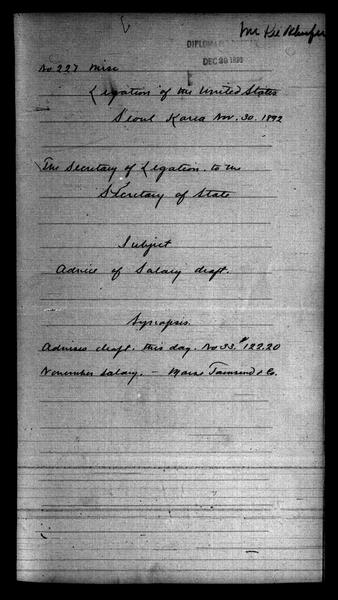 Mr
DIPLOMATIC
DEC 29 1892
No 227 Misc
Legation of the United States
Seoul Korea Nov. 30. 1892
The Secretary of Legation. to the
Secretary of State
Subject
Advice of Salary draft.
Synopsis.
Advises draft. this day. No 33. $122.20
November Salary. — Morse Townsend & Co.